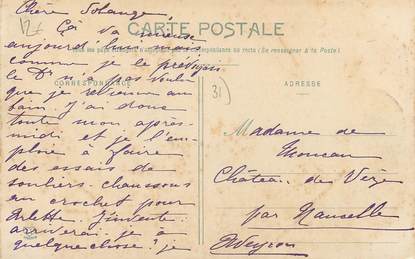 Chère Solange
CARTE POSTALE
Ça va mieux
aujourd'hui mais
Tous les pays étrangers n'acceptent pas la correspondance au recto (Se renseigner à la Poste)
comme je le prévoyais
le Dr n'a pas voulu
CORRESPONDANCE
ADRESSE
que je retienne au
bain. J'ai donc
31
toute mon après-
midi et je l'em-
ploie à faire
des essais de
souliers-chaussons
au crochet pour
Arlette. J'invente.
arriverai-je à
quelque chose? je
Madame de
Château de Vèze
par Naucelle
Aveyron